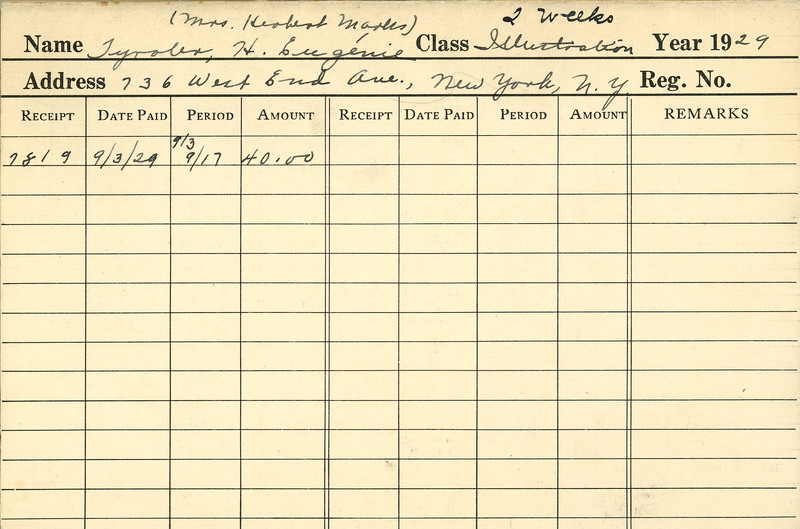 (Mrs. Herbert Marks) 2 Weeks
Name Tyroler, H. Eugénie Class Illustration Year 1929
Address 736 West End Ave., New York, N.Y Reg. No.
RECEIPT DATE PAID PERIOD AMOUNT RECEIPT DATE PAID PERIOD AMOUNT REMARKS
9/3
7819 9/3/29 9/17 40.00